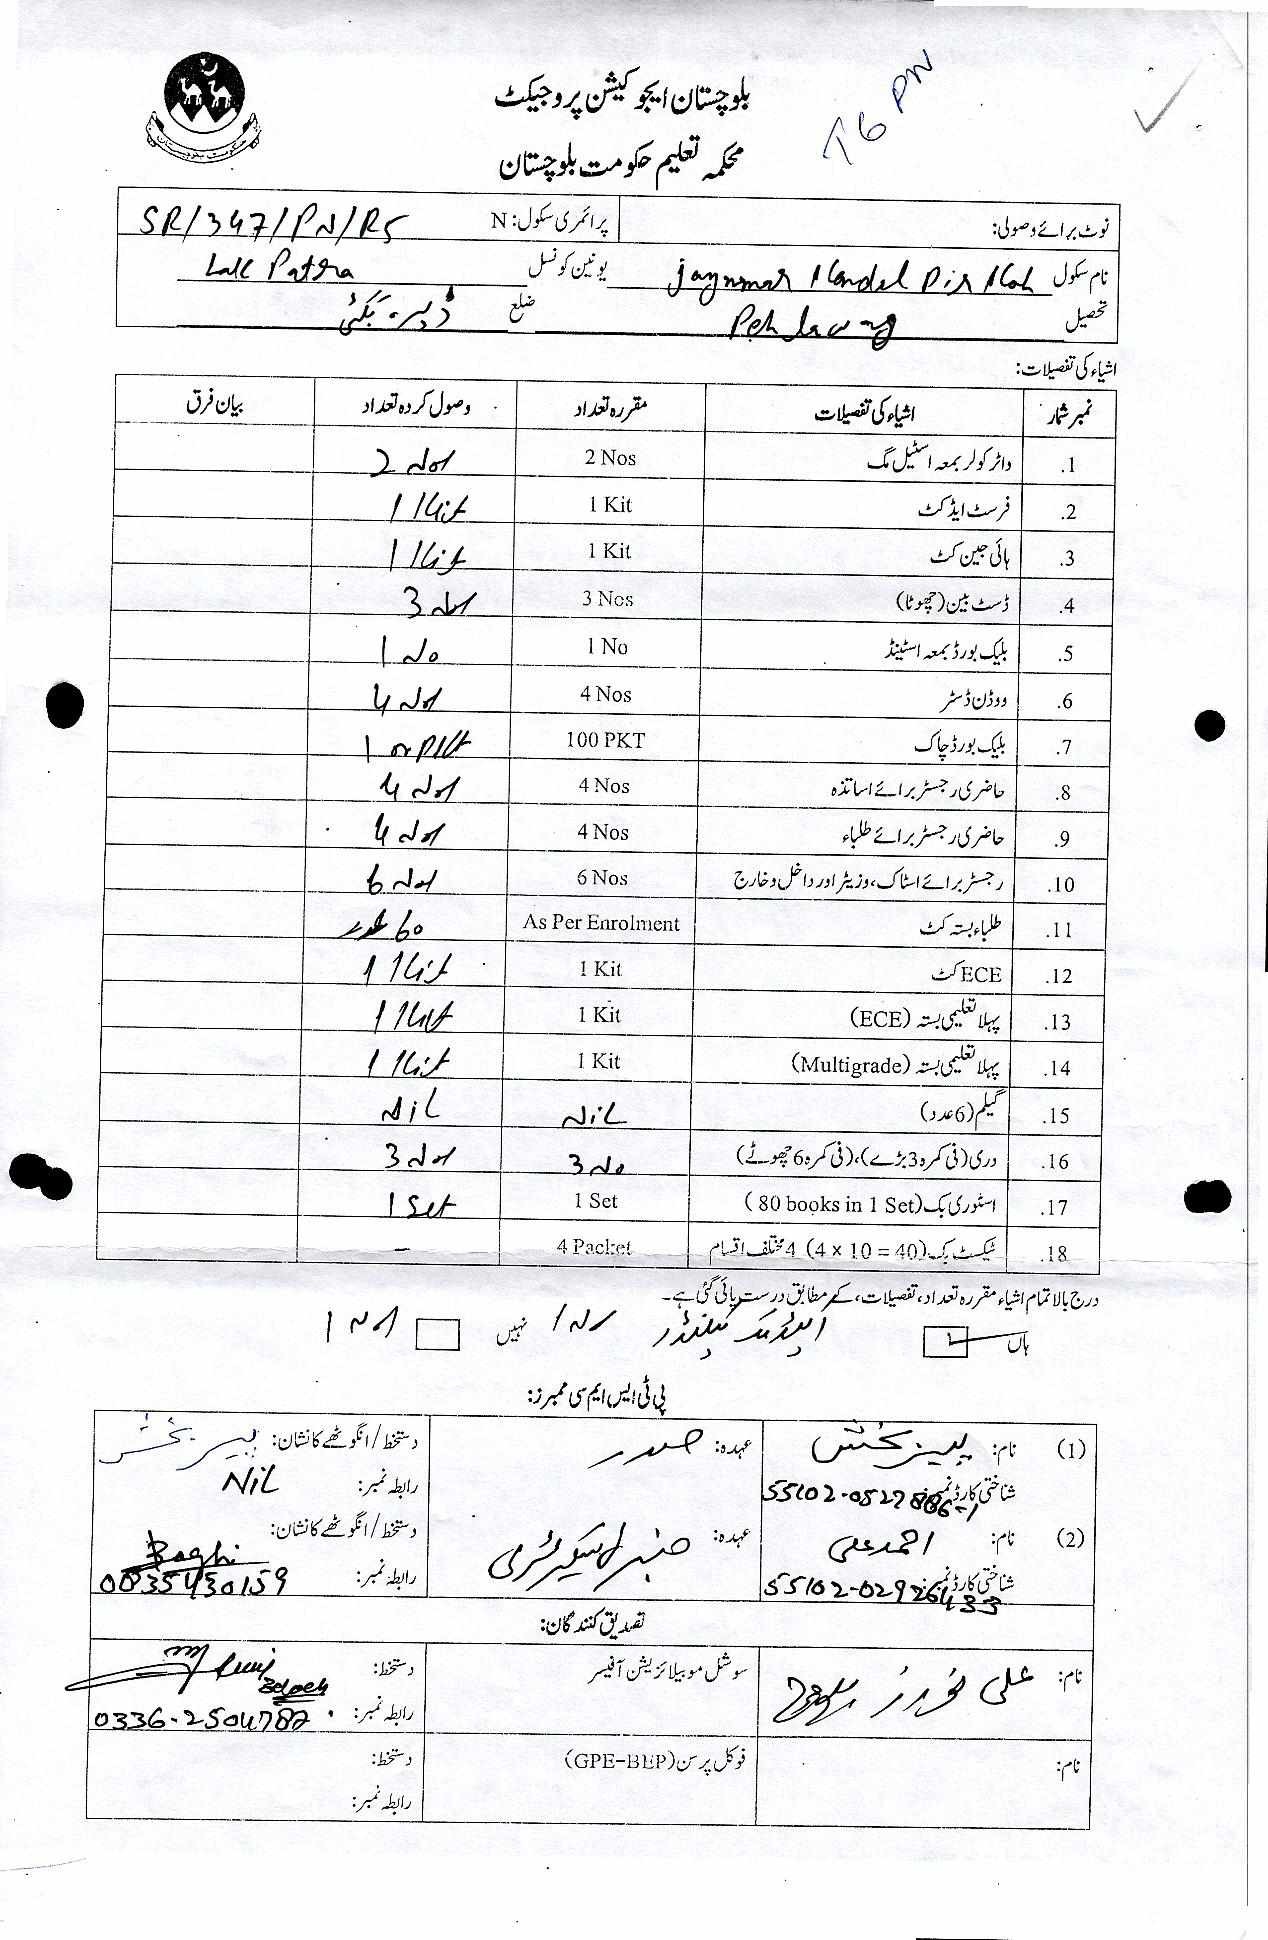 T6 PN
بلوچستان ایجوکیشن پروجیکٹ
محکمہ تعلیم حکومت بلوچستان
نوٹ برائے وصولی: پرائمری سکول: N SR/347/PN/RS
نام سکول یونین کونسل
تحصیل ضلع
اشیاء کی تفصیلات:
نمبر شمار اشیاء کی تفصیلات مقررہ تعداد وصول کردہ تعداد بیان فرق
1. واٹر کولر بمعہ اسٹیل مگ 2 Nos 2 Nos
2. فرسٹ ایڈ کٹ 1 Kit 1 Kit
3. ہائی جین کٹ 1 Kit 1 Kit
4. ڈسٹ بین (چھوٹا) 3 Nos 3 Nos
5. بلیک بورڈ بمعہ اسٹینڈ 1 No 1 No
6. ووڈن ڈسٹر 4 Nos 4 Nos
7. بلیک بورڈ چاک 100 PKT
8. حاضری رجسٹر برائے اساتذہ 4 Nos 4 Nos
9. حاضری رجسٹر برائے طلباء 4 Nos 4 Nos
10. رجسٹر برائے اسٹاک، وزیٹر اور داخل و خارج 6 Nos 6 Nos
11. طلباء بستہ کٹ As Per Enrolment 60 عدد
12. ECE کٹ 1 Kit 1 Kit
13. پہلا تعلیمی بستہ (ECE) 1 Kit 1 Kit
14. پہلا تعلیمی بستہ (Multigrade) 1 Kit 1 Kit
15. گیلم (6 عدد) NiL NiL
16. دری (فی کمرہ 3 بڑے)، (فی کمرہ 6 چھوٹے) 3 No 3 Nos
17. اسٹوری بک (80 books in 1 Set) 1 Set 1 Set
18. ٹیکسٹ بک (4 x 10 = 40) 4 مختلف اقسام 4 Packet –
درج بالا تمام اشیاء مقررہ تعداد، تفصیلات، کے مطابق درست پائی گئی ہے۔
ہاں نہیں
پی ٹی ایس ایم سی ممبرز:
(1) نام: پیر بخش عہدہ: صدر دستخط/انگوٹھے کا نشان: پیر بخش
شناختی کارڈ نمبر: رابطہ نمبر: NiL
(2) نام: احمد علی عہدہ: جنرل سیکریٹری دستخط/انگوٹھے کا نشان: Baghi
شناختی کارڈ نمبر: 55102-02926433 رابطہ نمبر:
تصدیق کنندگان:
نام: علی سوشل موبیلائزیشن آفیسر دستخط:
رابطہ نمبر: 0336-2504782
نام: فوکل پرسن (GPE-BEP) دستخط:
رابطہ نمبر: